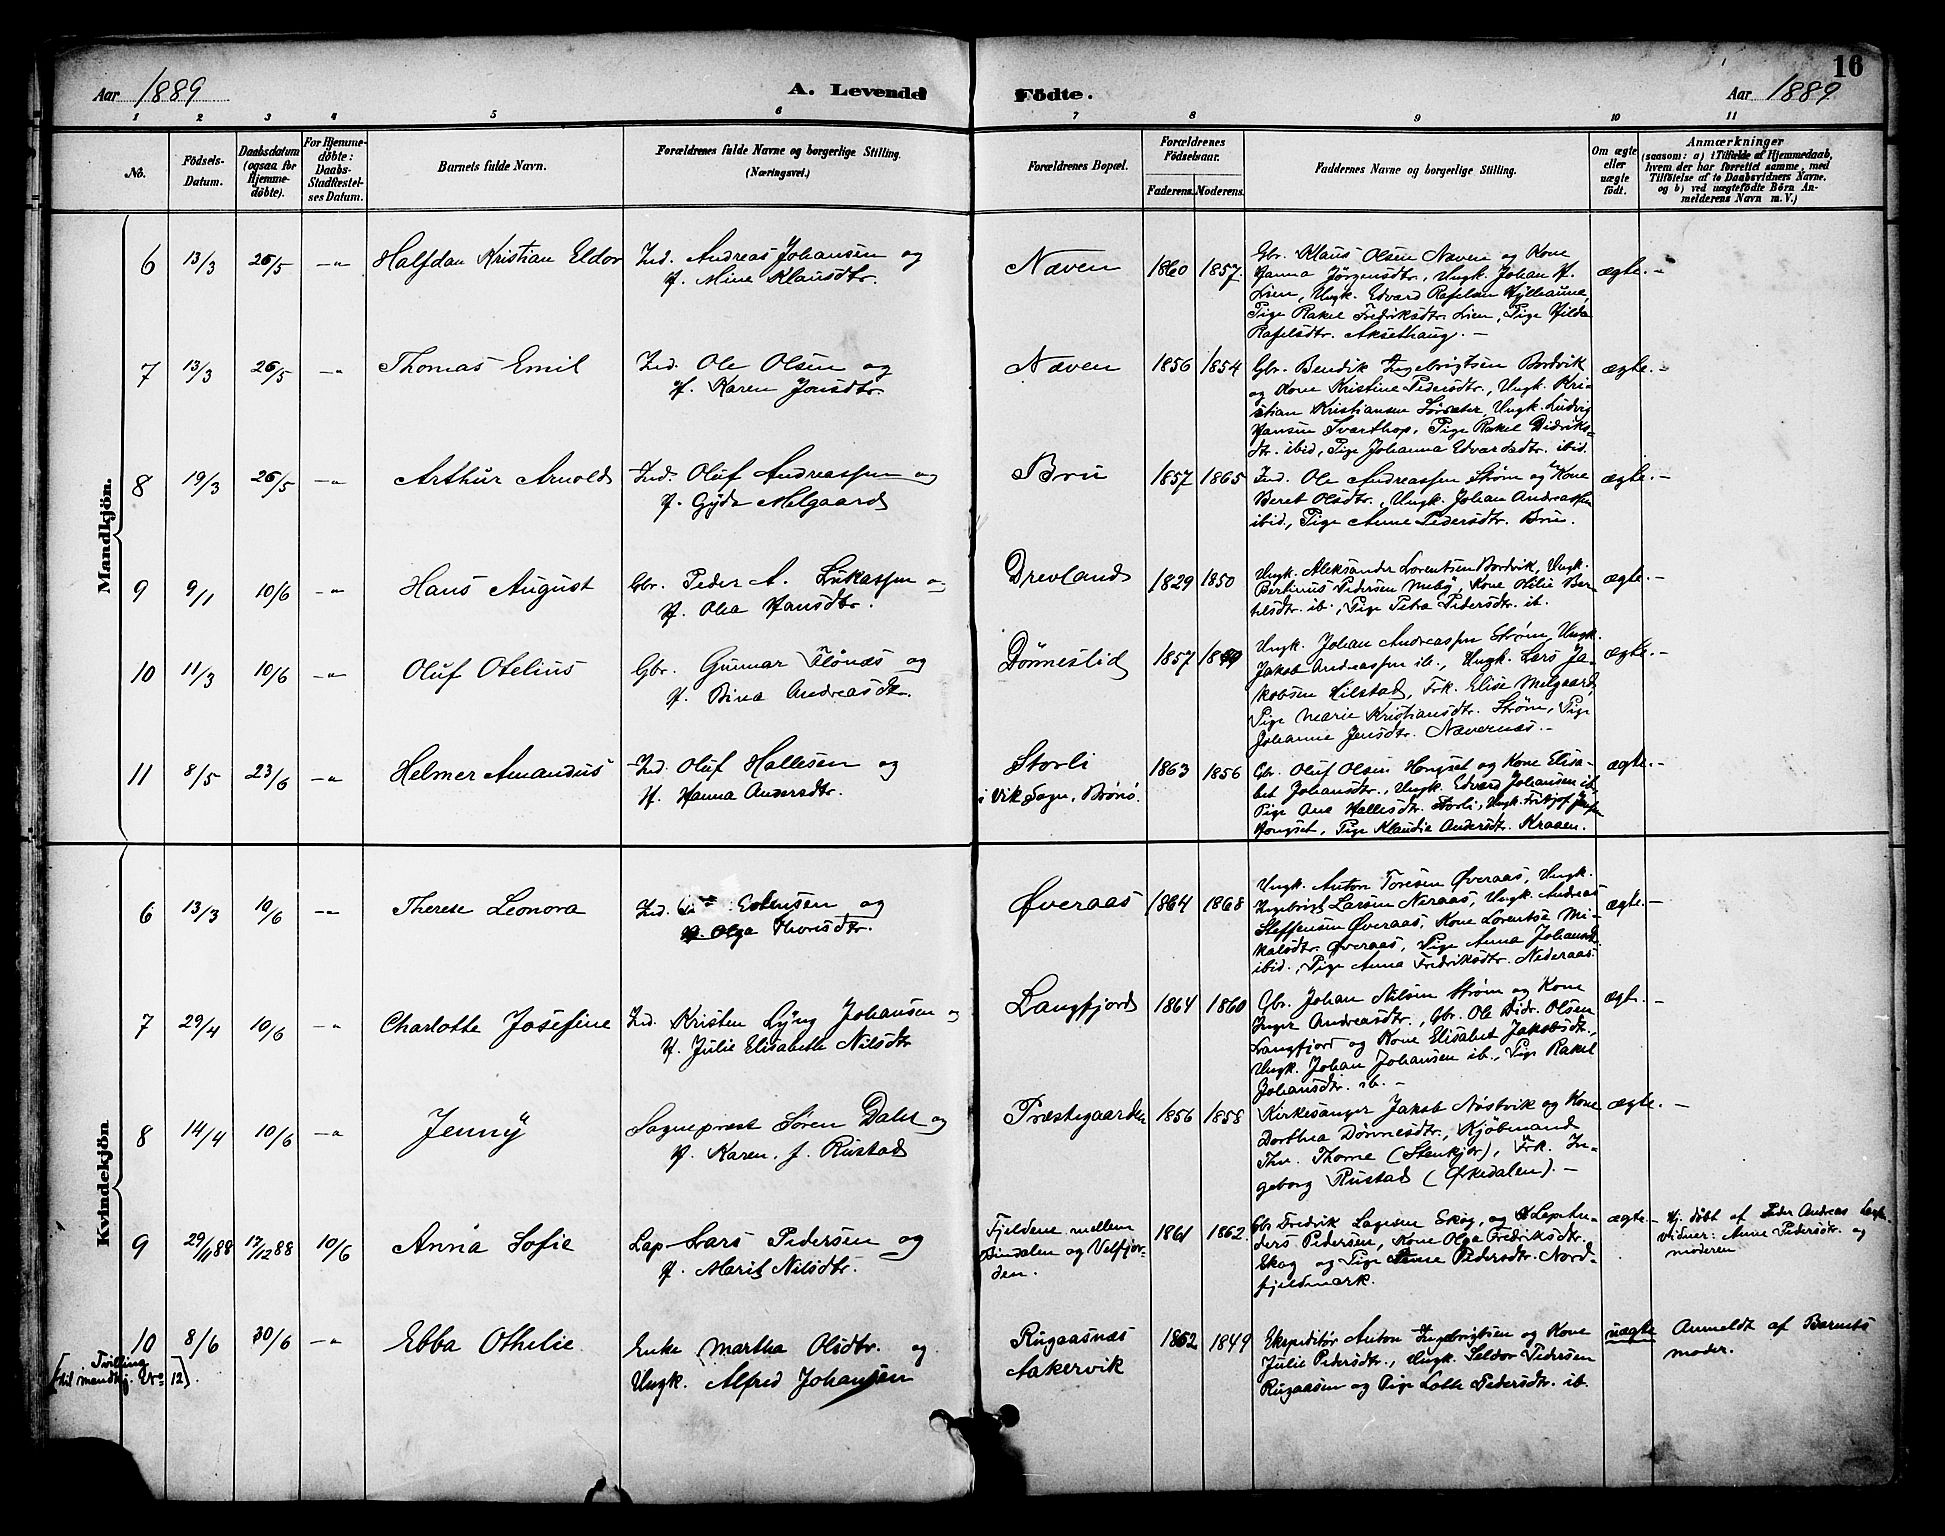 16
Aar 1889
A. Levende Födte.
Aar 1889
1 2 3 4 5 6 7 8 9 10 11
No.
Födsels-Datum.
Daabsdatum (ogsaa for Hjemmedöbte).
For Hjemmedöbte: Daabs-Stadfæstelses Datum.
Barnets fulde Navn.
Forældrenes fulde Navne og borgerlige Stilling. (Næringsvei.)
Forældrenes Bopæl.
Forældrenes Födselsaar.
Faderens. Moderens.
Faddernes Navne og borgerlige Stilling.
Om ægte eller uægte födt.
Anmærkninger
(saasom: a) i Tilfælde af Hjemmedaab,
hvem der har forrettet samme, med
Tilföielse af to Daabsvidners Navne,
og b) ved uægtefödte Börn An-
melderens Navn m. V.)
Mandkjön.
6 13/3 26/5 -"- Halfdan Kristian Eldor
Ind. Andreas Johansen og
H. Mine Klausdtr.
Næven 1860 1857
Gbr. Klaus Olsen Næven og Kone
Hanna Jörgensdtr., Ungk. Johan H.
Lien, Ungk. Edvard Rafelsen Hylleaune,
Pige Rakel Fredriksdtr. Lien, Pige Hilda
Rafelsdtr. Aksethaug. -
ægte. -
7 13/3 26/5 -"- Thomas Emil
Ind. Ole Olsen og
H. Karen Jonsdtr.
Næven 1856 1854
Gbr. Bendik Ingebrigtsen Bordvik
og Kone Kristine Pedersdtr., Ungk. Kri-
stian Kristiansen Sørsæter, Ungk. Ludvig
Hansen Svarthop, Pige Rakel Didriks-
dtr. ibid, Pige Johanna Edvardsdtr. ibid.
ægte. -
8 19/3 26/5 -"- Arthur Arnold
Ind. Oluf Andreassen og
H. Gyda Melgaard
Bru 1857 1865
Ind. Ole Andreassen Strøm og Kone
Beret Olsdtr., Ungk. Johan Andreassen
ibid, Pige Anne Pedersdtr. Bru.
ægte. -
9 9/1 10/6 -"- Hans August
Gbr. Peder A. Lukassen o
H. Olea Hansdtr.
Drevland 1829 1850
Ungk. Aleksander Lorentsen Bordvik, Ungk.
Bertinus Pedersen Meby, Kone Oelie Ber-
telsdtr. ib., Pige Petra Pedersdtr. ib.
ægte. -
10 11/3 10/6 -"- Oluf Otelius
Gbr. Gunnar Flönæs og
H. Bina Andreasdtr.
Dönneslid 1857
Ungk. Johan Andreassen Strøm, Ungk.
Jakob Andreassen ib., Ungk. Lars Ja-
kobsen Hilstad, Frk. Elise Melgaard,
Pige Marie Kristiansdtr. Strøm, Pige
Johanne Jensdtr. Nævernæs. -
ægte. -
11 8/5 23/6 -"- Helmer Amandus
Ind. Oluf Hallesen og
H. Hanna Andersdtr.
Storli
i Vik Sogn, Brönö.
1863 1856
Gbr. Oluf Olsen Hongset og Kone Elisa-
bet Johansdtr., Ungk. Edvard Johansen ib.
Pige Ane Hallesdtr. Storli, Ungk. Fritjof
Hongset, Pige Klaudia Andersdtr. Kraaen.
ægte. -
Kvindekjön.
6 13/3 10/6 -"- Therese Leonora
Ind. Estensen og
H. Olga Thorisdtr.
Øveraas 1864 1868
Ungk. Anton Toresen Øveraas, Ungk.
Ingebrigt Larsen Neraas, Ungk. Andreas
Steffensen Øveraas, Kone Lorentse Mi-
kalsdtr. Øveraas, Pige Anna Johansd.
ibid., Pige Anna Fredriksdtr. Nederaas.
ægte. -
7 29/4 10/6 -"- Charlotte Josefine
Ind. Kristen Lyng Johansen og
H. Julie Elisabeth Nilsdtr
Langfjord 1864 1860
Gbr. Johan Nilsen Strøm og Kone
Inger Andreasdtr., Gbr. Ole Didr. Olsen
Langfjord og Kone Elisabet Jakobsdtr.,
Ungk. Johan Johansen ib., Pige Rakel
Johansdtr. ib. -
ægt. -
8 14/4 10/6 -"- Jenny
Sogneprest Sören Dahl og
H. Karen, f. Rustad
Præstegaarden 1856 1858
Kirkesanger Jakob Nöstvik og Kone
Dorthea Dönnesdtr., Kjöbmand
Thv. Thorne (Stenkjær), Frk. In-
geborg Rustad (Ørkedalen). -
ægte. -
9 29/11 88 17/12 88 10/6 Anna Sofie
Lap Lars Pedersen og
H. Marit Nilsdtr.
Fjeldene mellem
Bindalen og Velfjor-
den.
1861 1862
Gbr. Fredrik Lagesen Skog, og Lap An-
ders Pedersen, Kone Olga Fredriksdtr.
Skog og Pige Anne Pedersdtr. Nord-
fjeldmark.
ægte -
Hj. döbt af Peder Andreas
vidner: Anne Pedersdtr. og
moderen
10 8/6 30/6 -"- Ebba Othelie
[Tvilling
til mandkj. No 12].
Enke Martha Olsdtr. og
Ungk. Alfred Johansen
Rugaasnæs
Aakervik
1862 1849
Ekspeditör Anton Ingebrigtsen og Kone
Julie Pedersdtr., Ungk. Seldor Pedersen
Rugaasen og Pige Lotte Pedersdtr. ib.
uægte
Anmeldt af Barnets
moder.